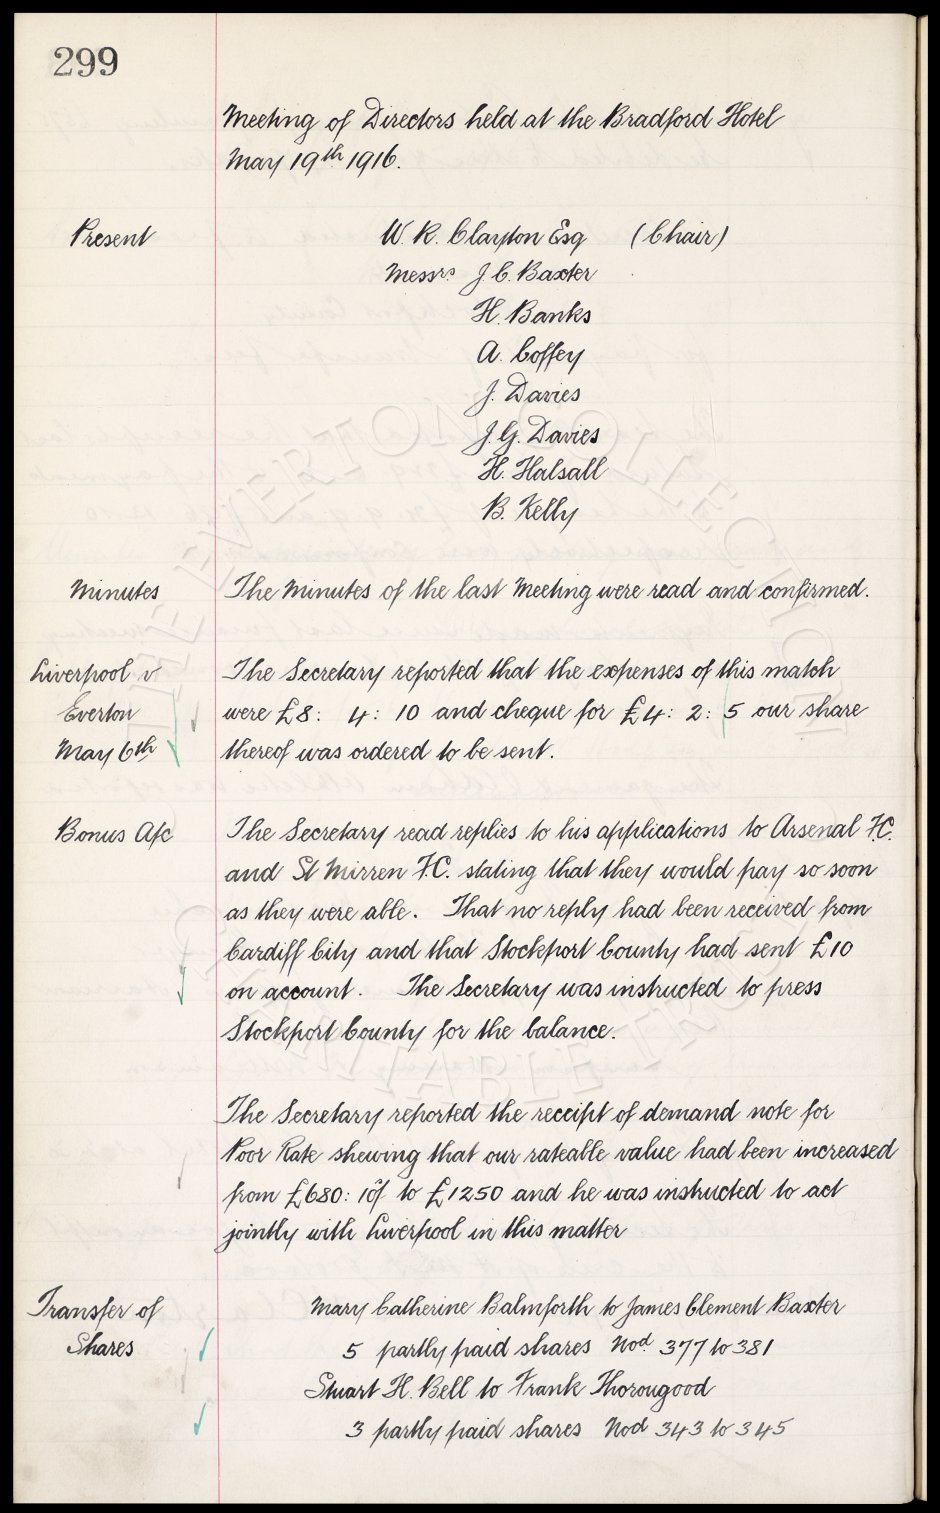 299
Meeting of Directors held at the Bradford Hotel
May 19th 1916.
Present
W. R. Clayton Esq (Chair)
Messrs J. C. Baxter
H. Banks
A. Coffey
J. Davies
J. G. Davies
H. Halsall
B. Kelly
Minutes
The Minutes of the last Meeting were read and confirmed.
Liverpool v
Everton
May 6th
The Secretary reported that the expenses of this match
were £8: 4: 10 and cheque for £4: 2: 5 our share
thereof was ordered to be sent.
Bonus A/c
The Secretary read replies to his applications to Arsenal F.C.
and St Mirren F.C. stating that they would pay so soon
as they were able. That no reply had been received from
Cardiff City and that Stockport County had sent £10
on account. The Secretary was instructed to press
Stockport County for the balance.
The Secretary reported the receipt of demand note for
Poor Rate shewing that our rateable value had been increased
from £680: 10/- to £1250 and he was instructed to act
jointly with Liverpool in this matter
Transfer of
Shares
Mary Catherine Balmforth to James Clement Baxter
5 partly paid shares Nod. 377 to 381
Stuart H. Bell to Frank Thorougood
3 partly paid shares Nod 343 to 345
THE EVERTON COLLECTION
CHARITABLE TRUST